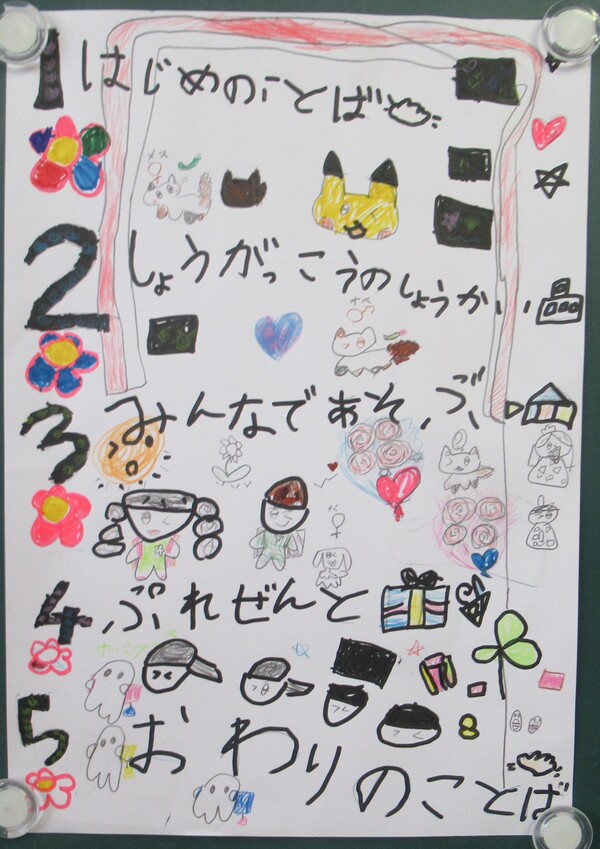 1 はじめのことば
メス
2 しょうがっこうのしょうかい
オス
3 みんなであそぶ
4 ぷれぜんと
5 おわりのことば